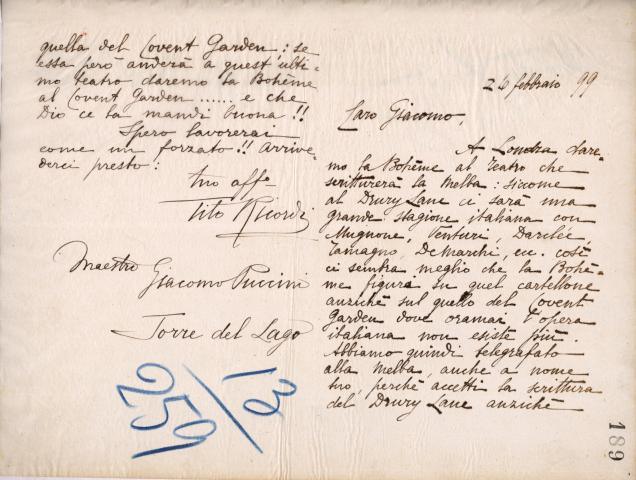 26 febbraio 99
Caro Giacomo,
A Londra dare-
mo la Bohème al teatro che
scritturerà la Melba: siccome
al Drury Lane ci sarà una
grande stagione italiana con
Mugnone, Venturi, Darclée
Tamagno, De Marchi, ecc. così
ci sembra meglio che la Bohè-
me figuri su quel cartellone
anziché sul quello del Covent
Garden dove oramai l'opera
italiana non esiste più.
Abbiamo quindi telegrafato
alla Melba, anche a nome
tuo, perché accetti la scrittura
del Drury Lane anziché
quella del Covent Garden: se
essa però anderà a quest'ulti-
mo teatro daremo la Bohème
al Covent Garden ...... e che
Dio ce la mandi buona!!
Spero lavorerai
come un forzato!! Arrive-
derci presto:
tuo aff
Tito Ricordi
Maestro
Giacomo Puccini
Torre del Lago
13/259
189